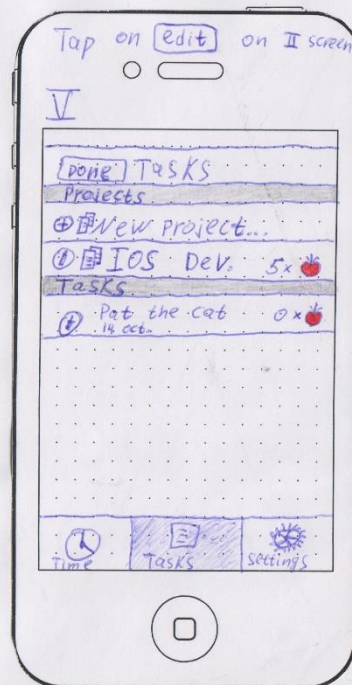 Tap on edit on II screen
V
Done Tasks
Projects
New Project...
IOS Dev. 5x
Tasks
Pat the cat 0x
14 oct.
Time Tasks settings